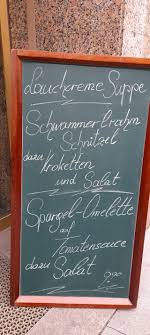 Lauchcreme Suppe
Schwammerlrahm
Schnitzel
dazu Kroketten
und Salat
Spargel-Omelette
auf
Tomatensauce
dazu Salat
9,90